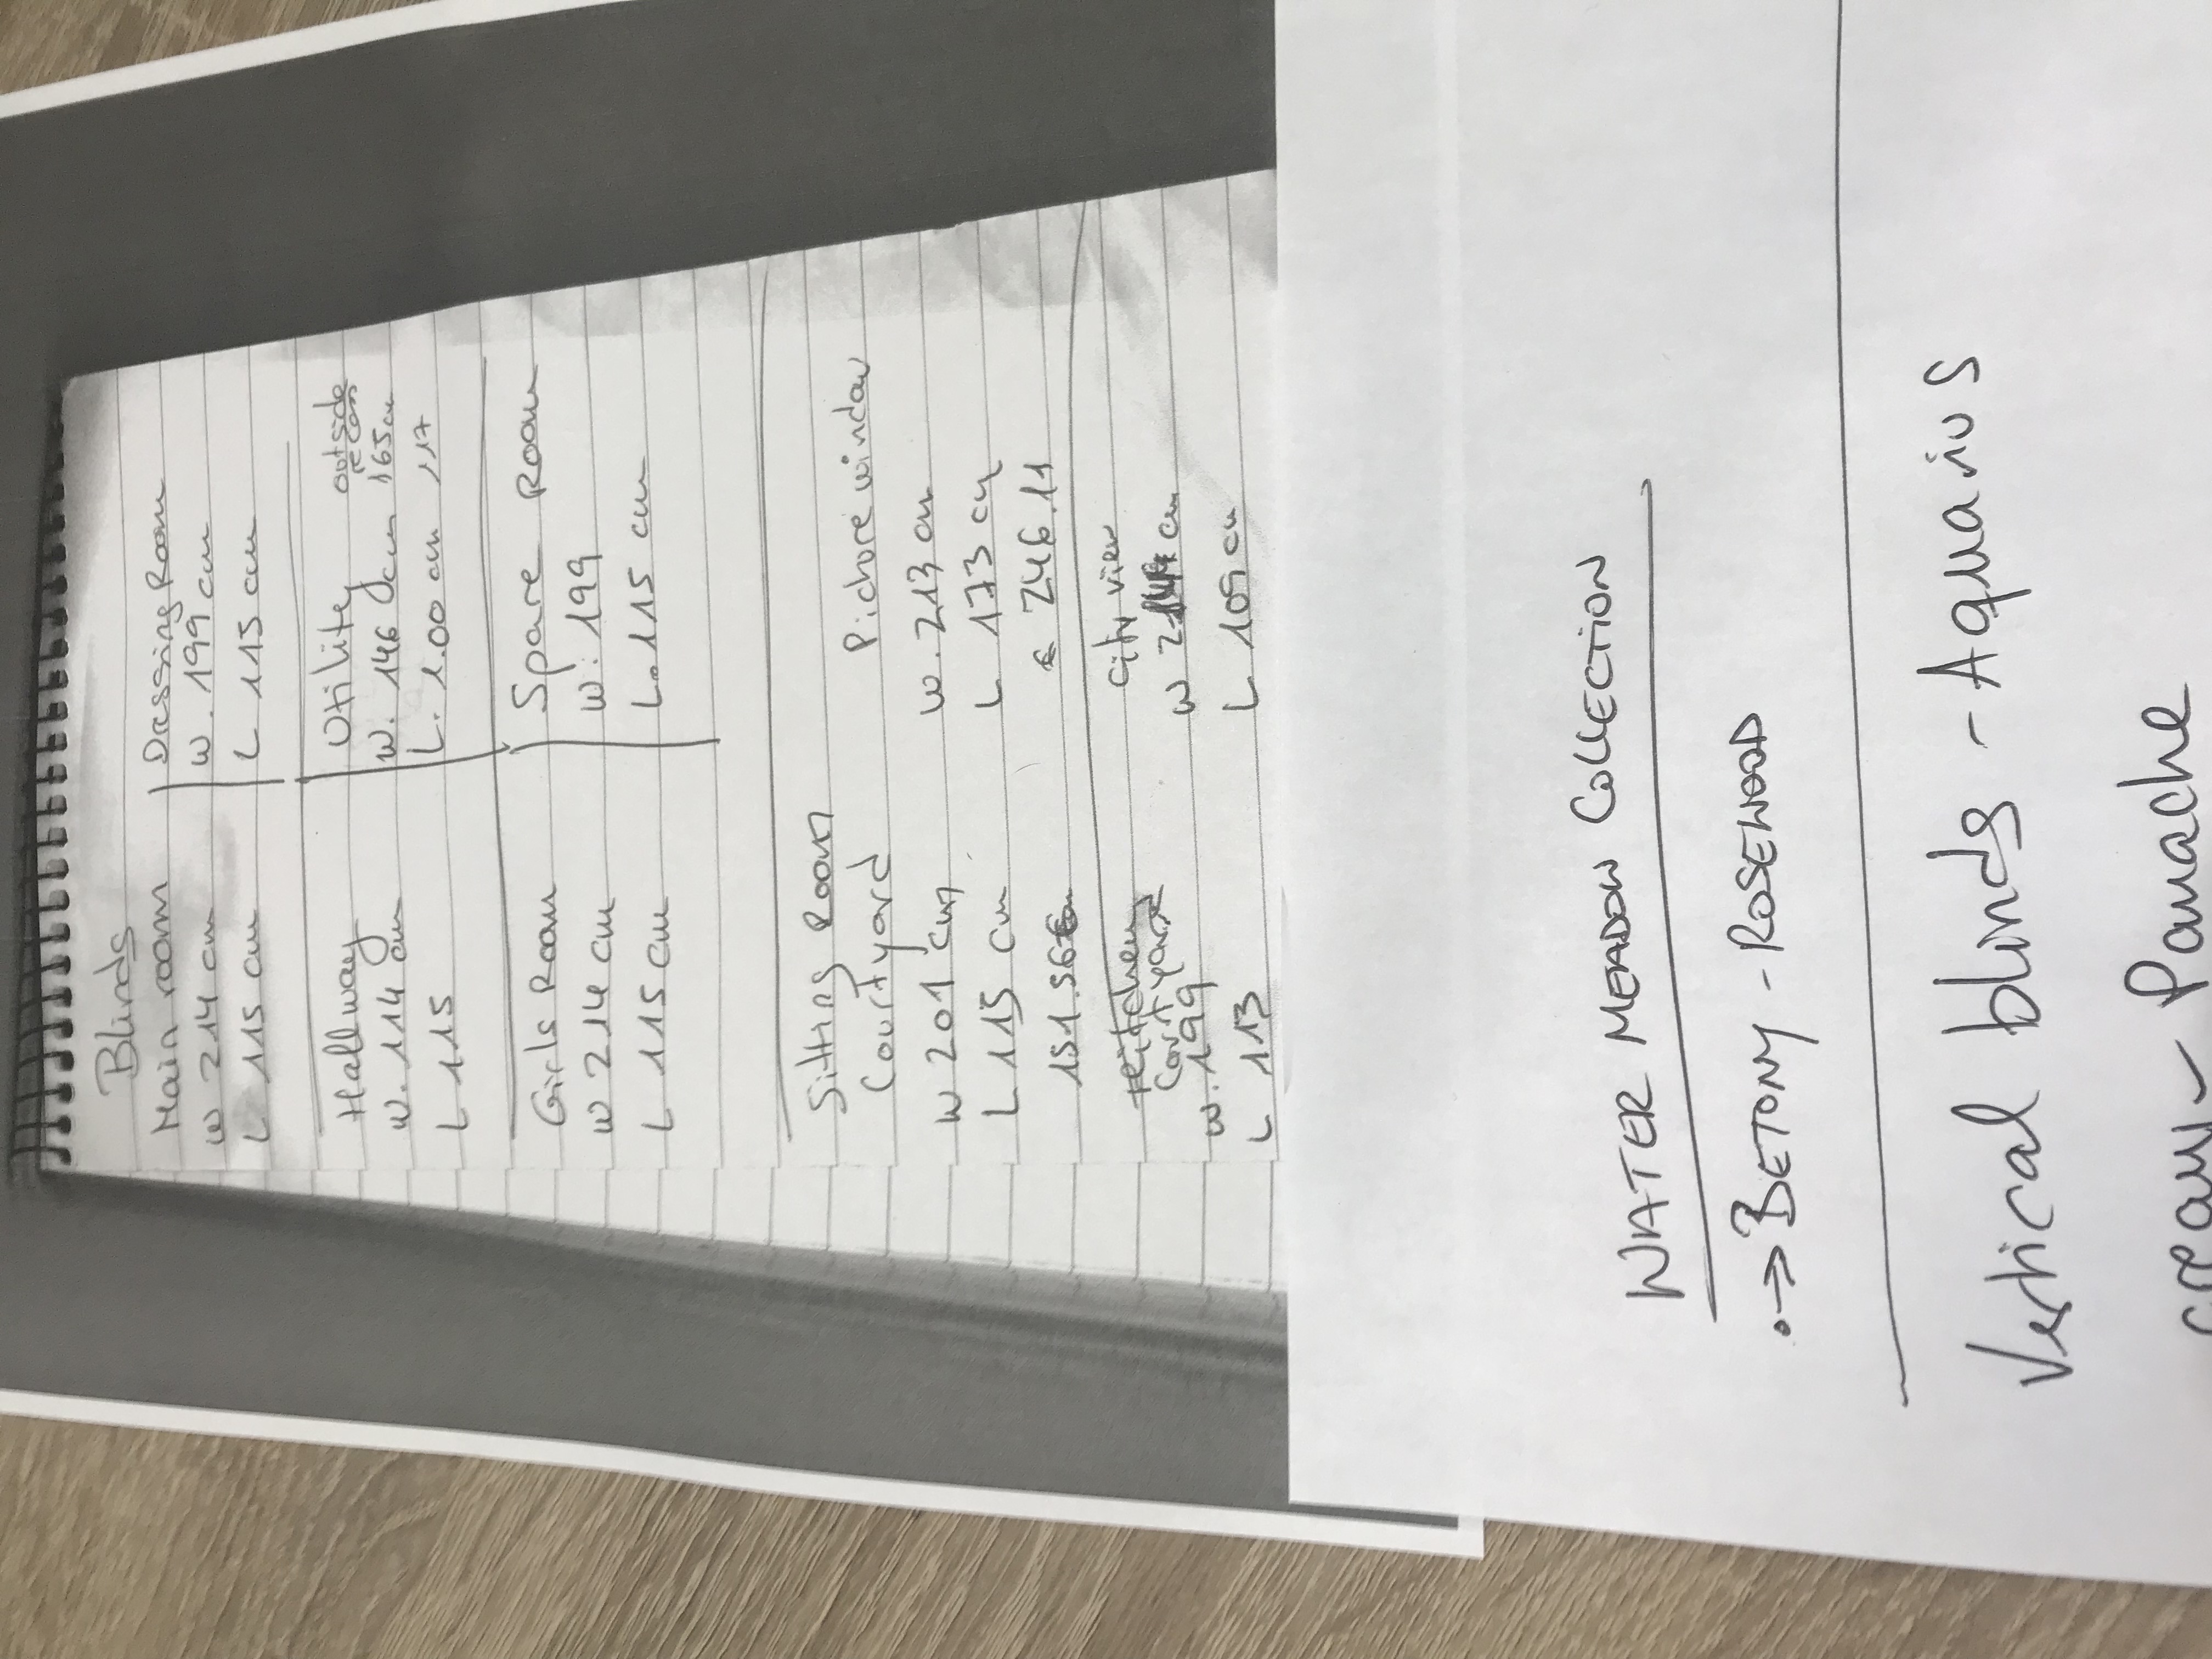 Blinds
Main room
W 214 cm
L 115 cm
Dassing Room
W. 199 cm
L 115 cm
Hallway
W. 114 cm
L 115
Utility outside
W. 146 cm 165cm
L. 1.00 cm 117
Girls Room
W 214 cm
L 115 cm
Spare Room
W: 199
L. 115 cm
Sitting Room
Courtyard
W 201 cm
L 115 cm
151.56
Pichore window
W. 213 cm
L 173 cm
€ 246.11
Kitchen
Cortyard
W. 199
L 113
City view
W cm
L 109 cm
WATER MEADOW COLLECTION
•→> BETONY - ROSEWOOD
Vertical blinds - Aquarius
cream - Panache